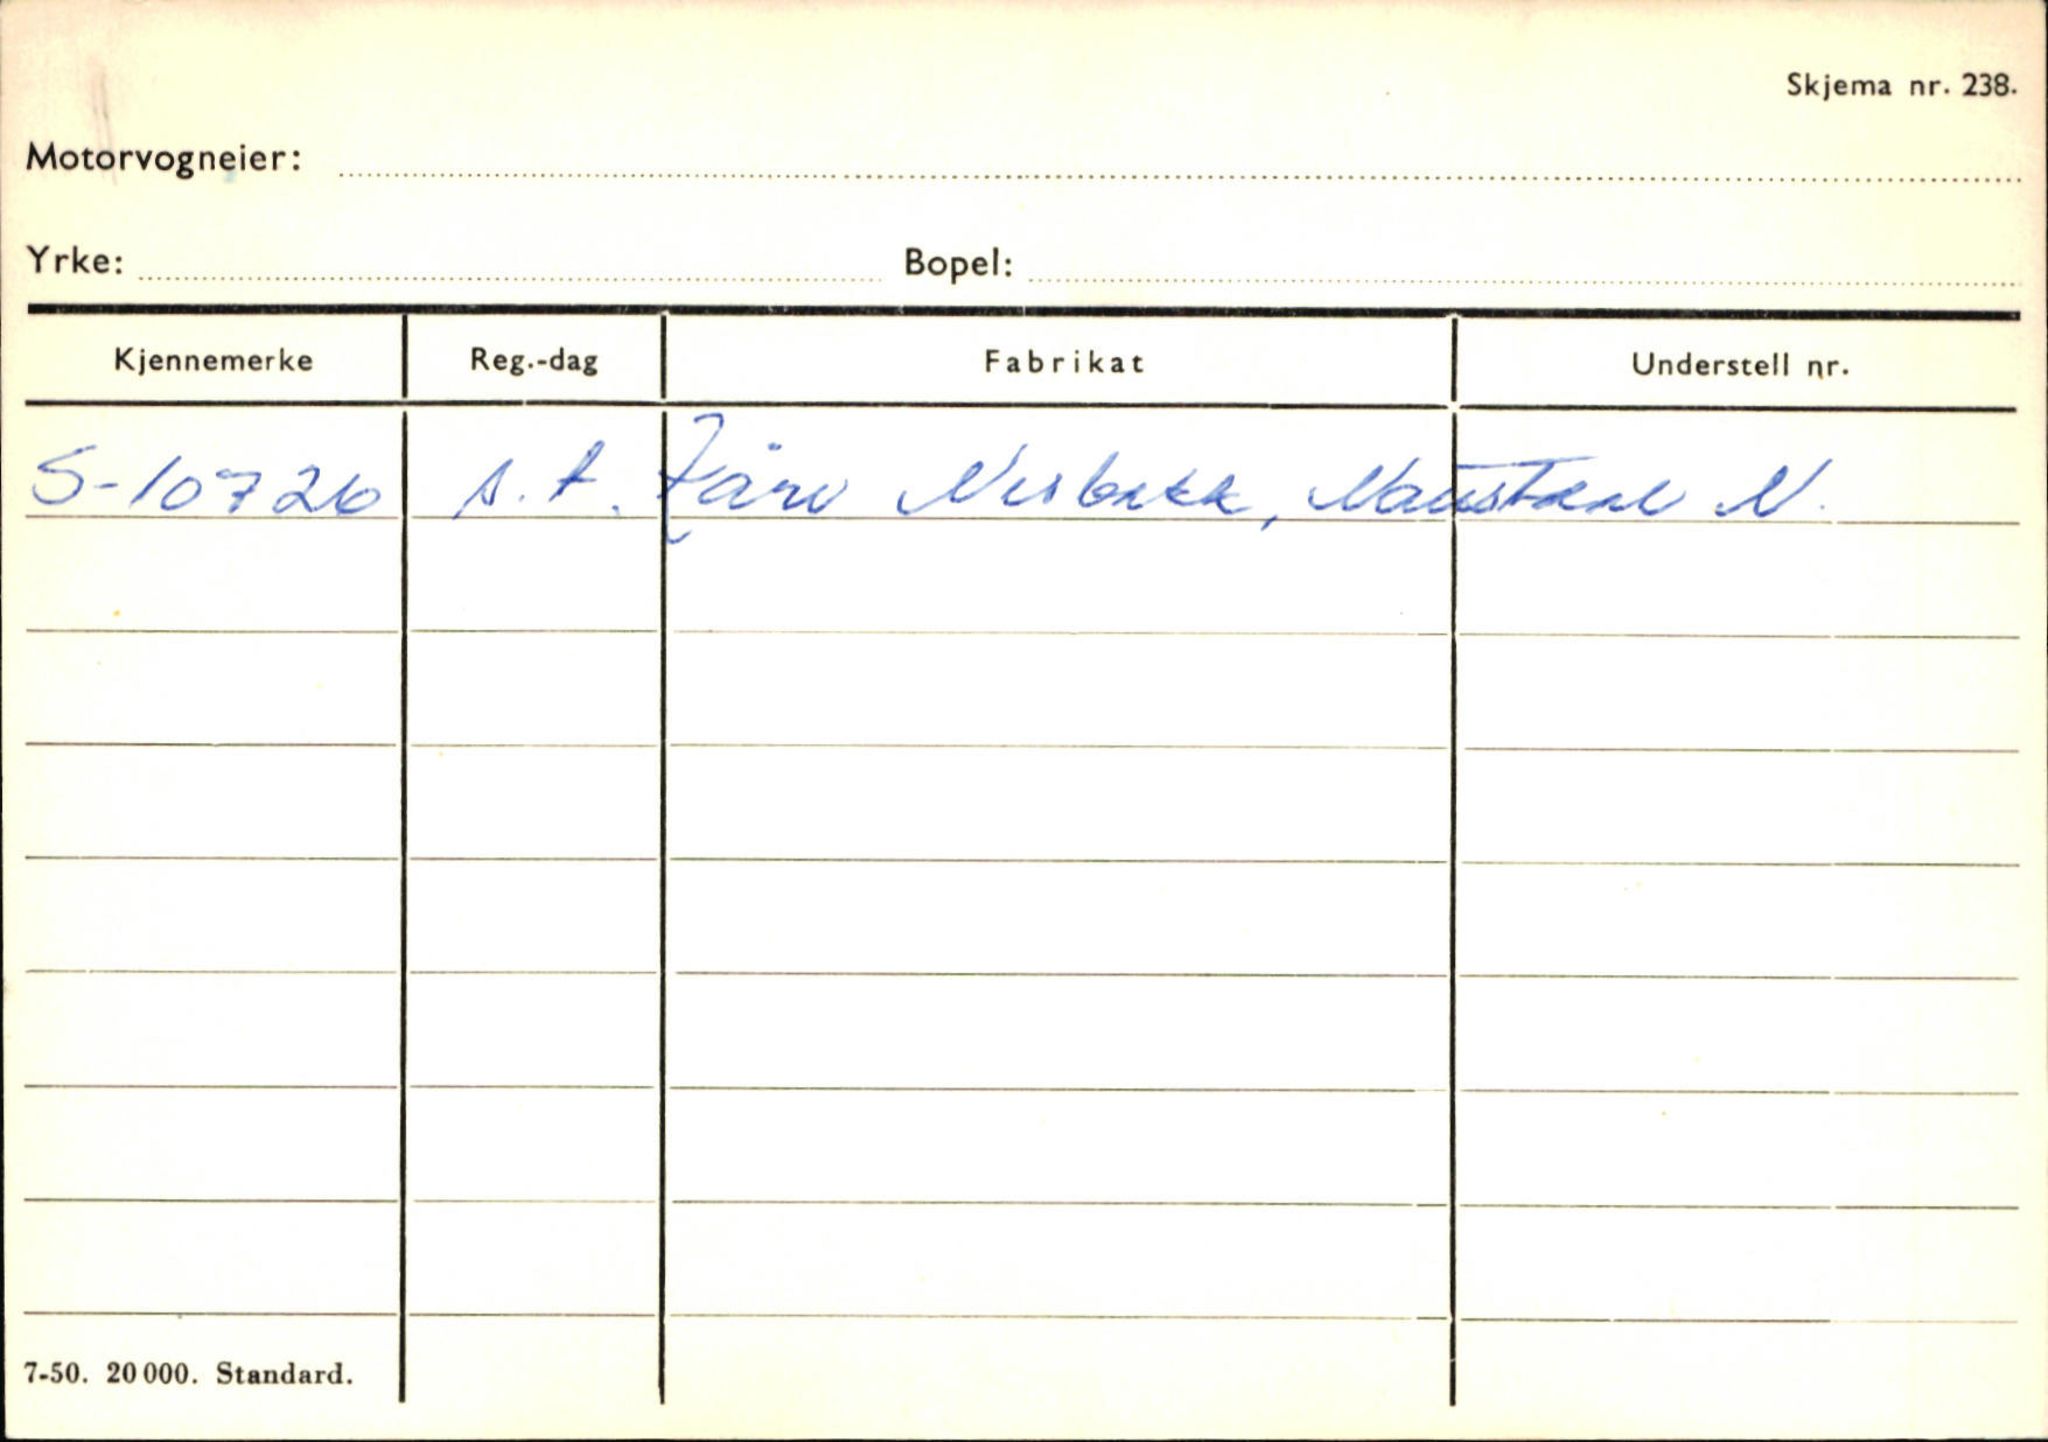 Skjema nr. 238.
Motorvogneier:
Yrke: Bopel:
Kjennemerke Reg.-dag Fabrikat Understell nr.
S-10726 s. t. Kåre Nesbakk, Naustdal N.
7-50. 20 000. Standard.